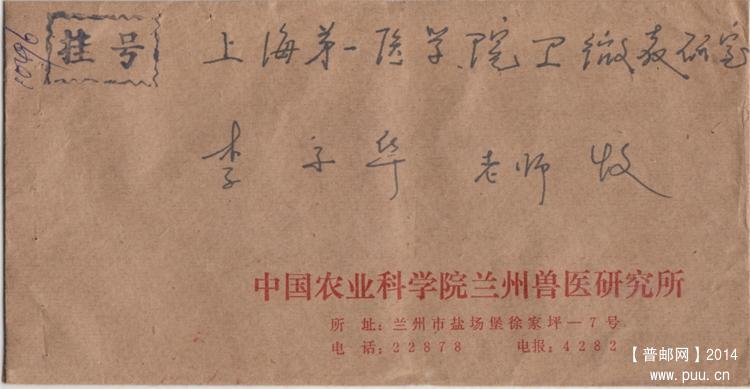 10496
挂号
上海第一医学院卫微教研室
李子华 老师 收
中国农业科学院兰州兽医研究所
所 址：兰州市盐场堡徐家坪一7号
电 话：22878 电报：4282
【普邮网】2014
www.puu.cn